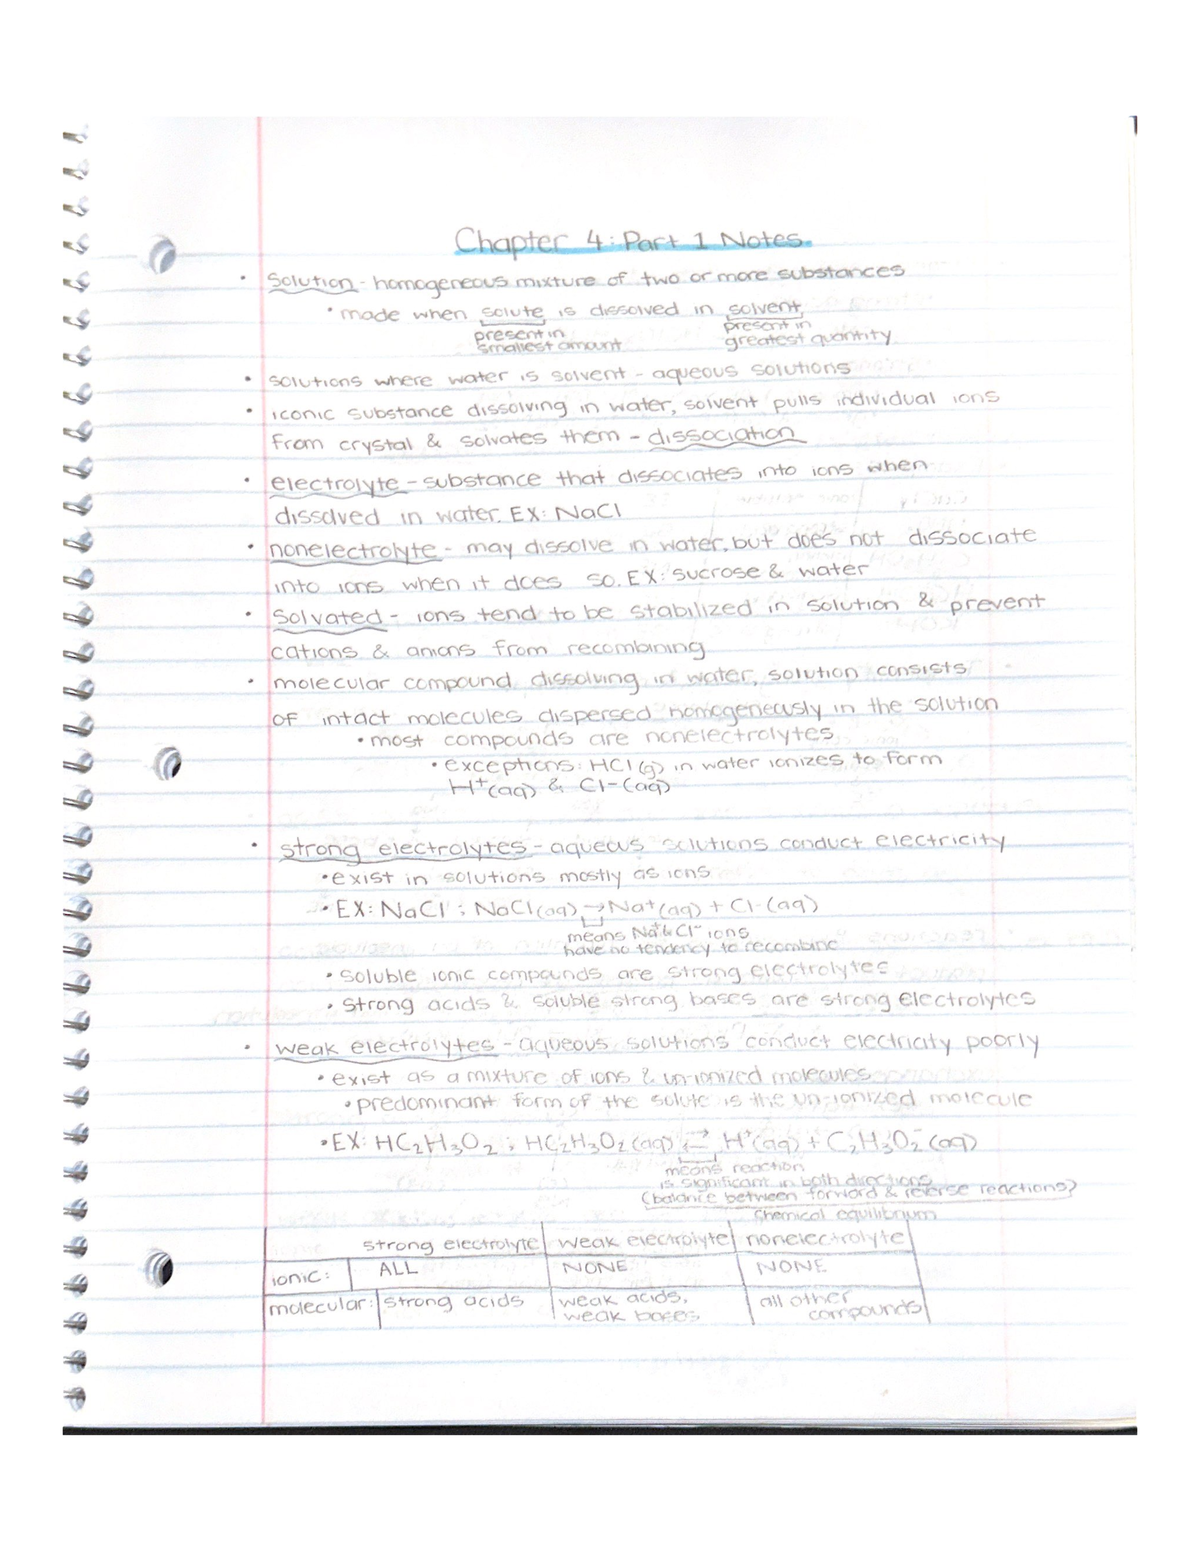 Chapter 4: Part 1 Notes
• Solution - homogeneous mixture of two or more substances
• made when solute is dissolved in solvent
present in smallest amount
present in greatest quantity
• solutions where water is solvent - aqueous solutions
• iconic substance dissolving in water, solvent pulls individual ions
from crystal & solvates them - dissociation
• electrolyte - substance that dissociates into ions when
dissolved in water. EX: NaCl
• nonelectrolyte - may dissolve in water, but does not dissociate
into ions when it does so. EX: sucrose & water
• Solvated - ions tend to be stabilized in solution & prevent
cations & anions from recombining
• molecular compound dissolving in water, solution consists
of intact molecules dispersed homogeneously in the solution
• most compounds are nonelectrolytes
• exceptions: HCl(g) in water ionizes to form
H⁺(aq) & Cl-(aq)
• strong electrolytes - aqueous solutions conduct electricity
• exist in solutions mostly as ions
• EX: NaCl ; NaCl(aq) → Na⁺(aq) + Cl-(aq)
means Na⁺ & Cl⁻ ions
have no tendency to recombine
• soluble ionic compounds are strong electrolytes
• strong acids & soluble strong bases are strong electrolytes
• weak electrolytes - aqueous solutions conduct electricity poorly
• exist as a mixture of ions & un-ionized molecules
• predominant form of the solute is the un-ionized molecule
• EX: HC₂H₃O₂ ; HC₂H₃O₂(aq) ⇄ H⁺(aq) + C₂H₃O₂⁻(aq)
means reaction
is significant in both directions
(balance between forward & reverse reactions?
chemical equilibrium
strong electrolyte | weak electrolyte | nonelectrolyte
ionic: | ALL | NONE | NONE
molecular: | strong acids | weak acids, weak bases | all other compounds